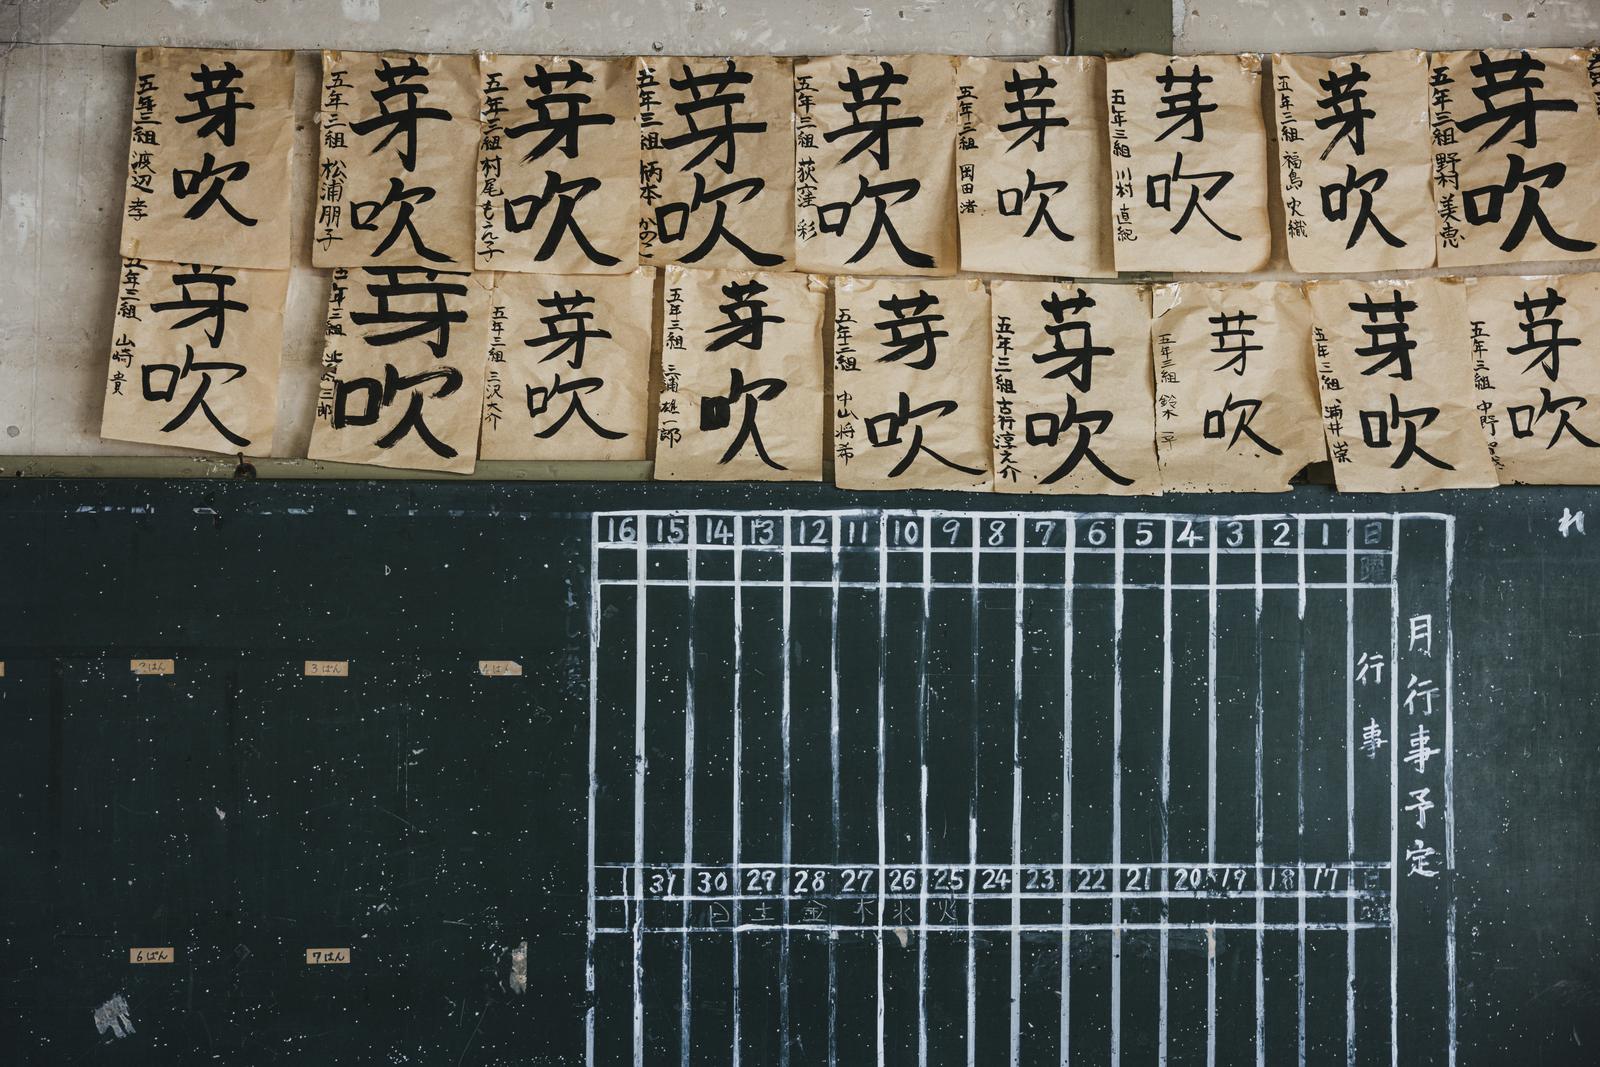 芽吹
五年三組 渡辺 孝
芽吹
五年三組 松浦朋子
芽吹
五年三組 村尾もえ子
芽吹
五年三組 柄本 かのこ
芽吹
五年三組 荻窪 彩
芽吹
五年三組 岡田 渚
芽吹
五年三組 川村 直
芽吹
五年三組 福島 織
芽吹
五年三組 野村 美恵
芽吹
五年三組 山崎 貴
芽吹
五年三組 三郎
芽吹
五年三組 三沢大介
芽吹
五年三組 三浦雄一郎
芽吹
五年三組 中山 将希
芽吹
五年三組 古行淳之介
芽吹
五年三組 鈴木 一平
芽吹
五年三組 浦井 栄
芽吹
五年三組 中野
れ
月行事予定
日 1 2 3 4 5 6 7 8 9 10 11 12 13 14 15 16
曜
行事
17 18 19 20 21 22 23 24 25 26 27 28 29 30 31
火 水 木 金 土 日
2はん
3はん
4はん
6はん
7はん